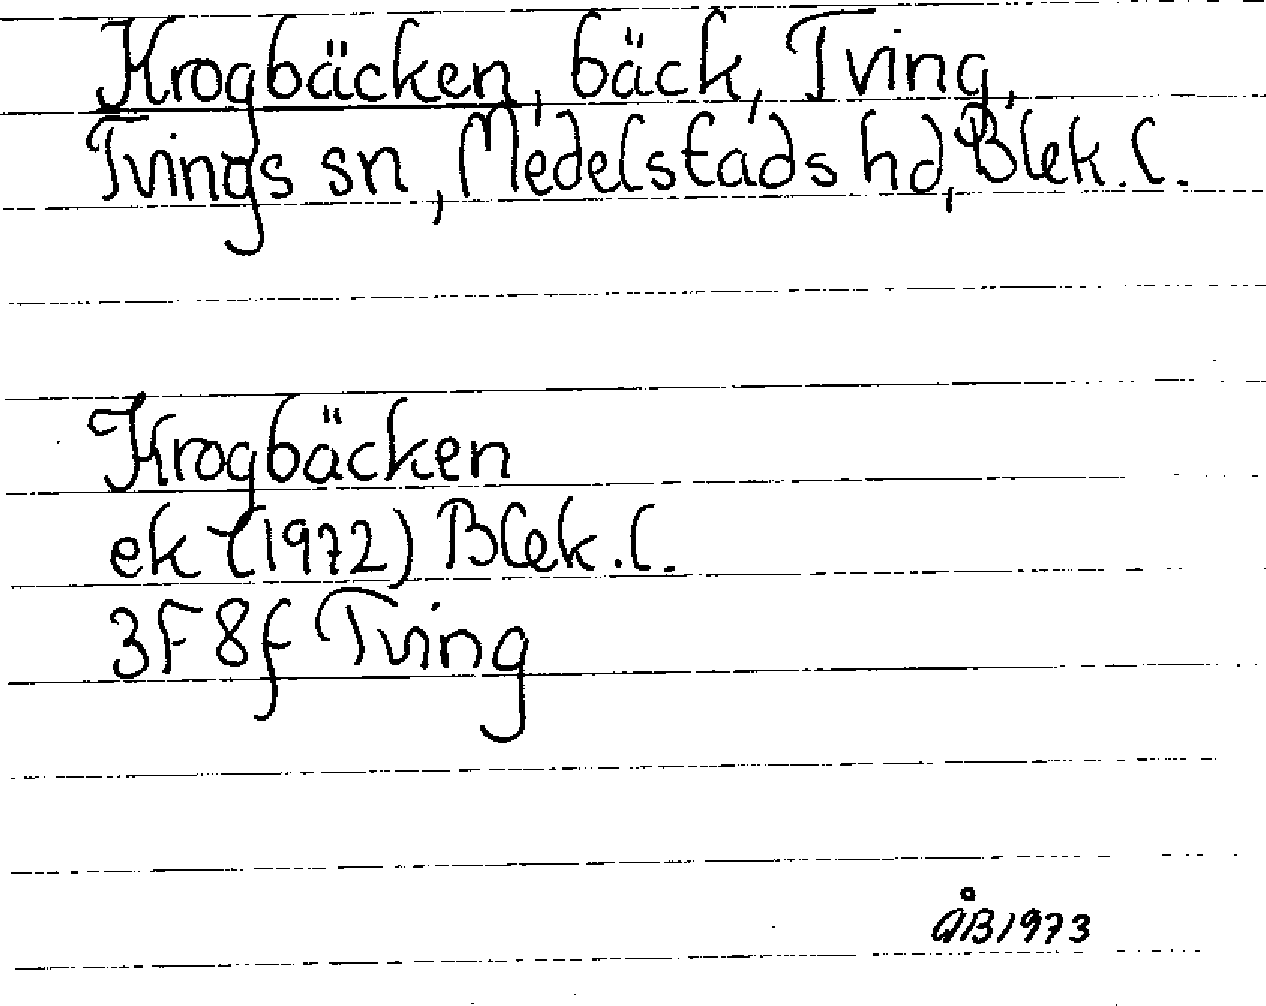 Krogbäcken, bäck, Tving,
Tvings sn, Medelstads hd, Blek. l.
Krogbäcken
ek (1972) Blek. l.
3F8f Tving
ÅB1973